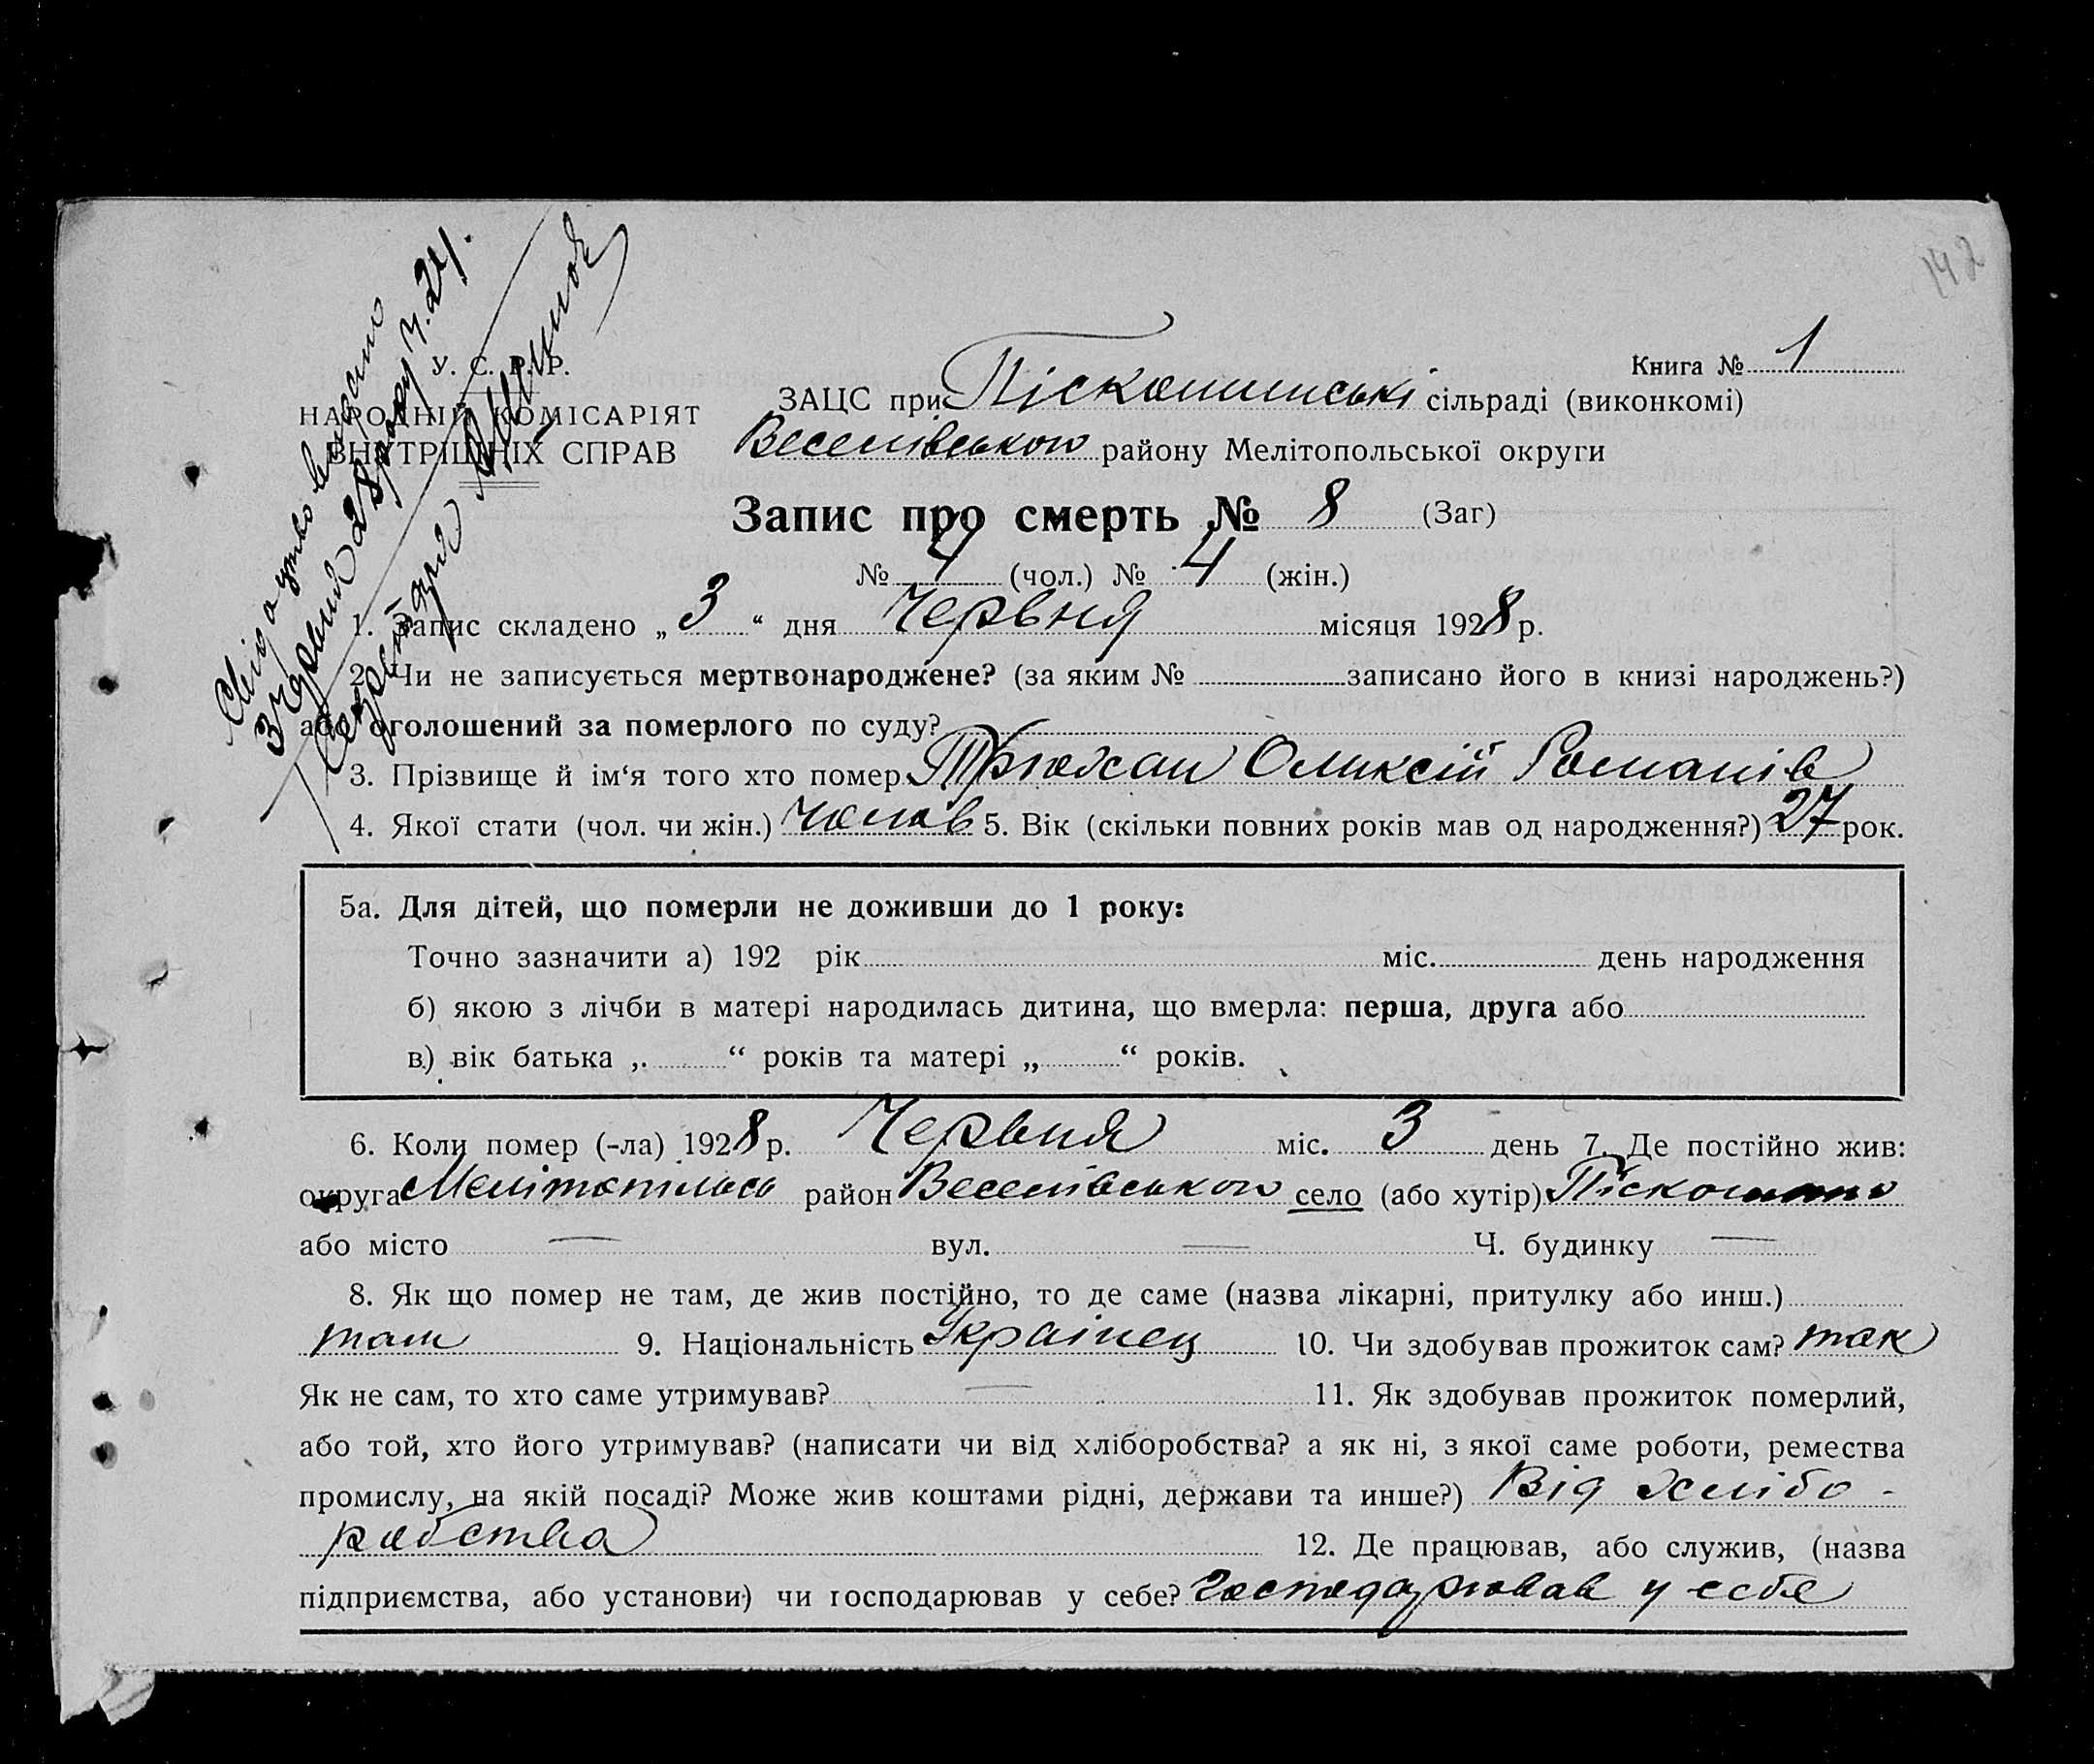 142
Свідоцтво видано
3 червня 28 року ч. 24.
У. С. Р. Р.
НАРОДНІЙ КОМІСАРІЯТ
ВНУТРІШНІХ СПРАВ
Книга № 1
ЗАЦС при Піскошинські сільраді (виконкомі)
Веселівського району Мелітопольської округи
Запис про смерть № 8 (Заг)
№ 4 (чол.) № 4 (жін.)
1. Запис складено „ 3 “ дня Червня місяця 1928 р.
2. Чи не записується мертвонароджене? (за яким № записано його в книзі народжень?)
або оголошений за померлого по суду?
3. Прізвище й ім‘я того хто помер Трюхан Оликсій Романів
4. Якої стати (чол. чи жін.) чолов 5. Вік (скільки повних років мав од народження?) 27 рок.
5а. Для дітей, що померли не доживши до 1 року:
Точно зазначити а) 192 рік міс. день народження
б) якою з лічби в матері народилась дитина, що вмерла: перша, друга або
в) вік батька „ “ років та матері „ “ років.
6. Коли помер (-ла) 1928 р. Червня міс. 3 день 7. Де постійно жив:
округа район Веселівського село (або хутір) Піскошино
або місто — вул. — Ч. будинку —
8. Як що помер не там, де жив постійно, то де саме (назва лікарні, притулку або инш.)
там 9. Національність Українец 10. Чи здобував прожиток сам? так
Як не сам, то хто саме утримував? — 11. Як здобував прожиток померлий,
або той, хто його утримував? (написати чи від хліборобства? а як ні, з якої саме роботи, ремества
промислу, на якій посаді? Може жив коштами рідні, держави та инше?) Від хлібо-
робства 12. Де працював, або служив, (назва
підприємства, або установи) чи господарював у себе? Господарював у себе